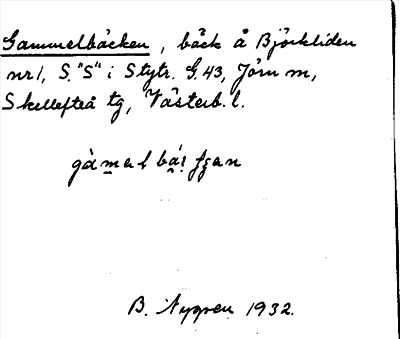 Gammelbäcken, bäck å Björkliden
nr 1, S. "S" i Stytr. G. 43, Jörn m,
Skellefteå tg, Västerb. l.
B. Nygren 1932.